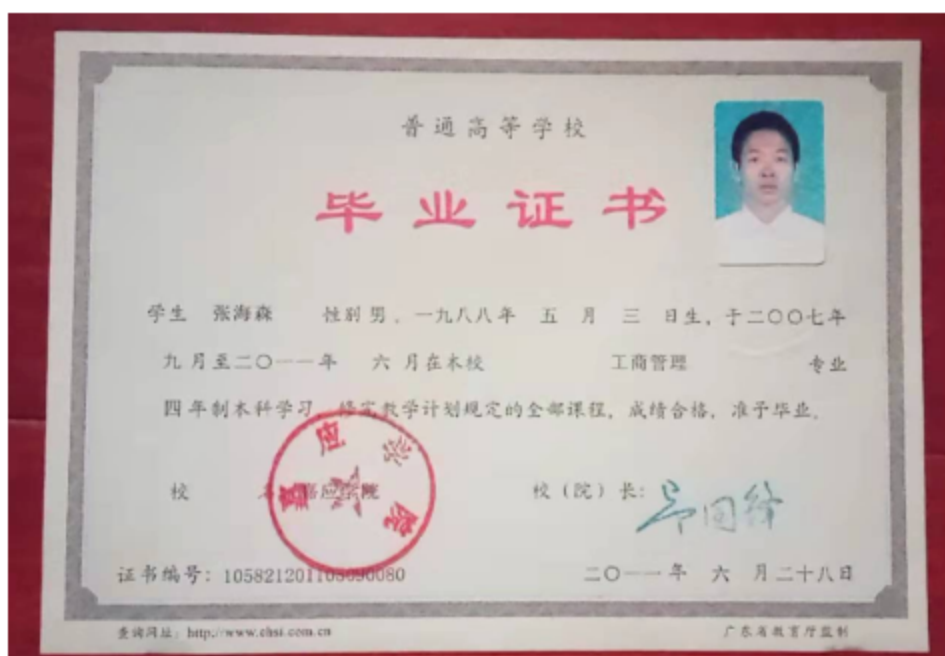 普通高等学校
毕业证书
学生 张海森 性别 男，一九八八年 五 月 三 日生，于二〇〇七年
九 月至二〇一一年 六 月在本校 工商管理 专业
四 年制本科学习，修完教学计划规定的全部课程，成绩合格，准予毕业。
校 名：嘉应学院 校（院）长：
嘉应学院
证书编号：105821201105090080 二〇一一年 六 月二十八日
查询网址：http://www.chsi.com.cn 广东省教育厅监制